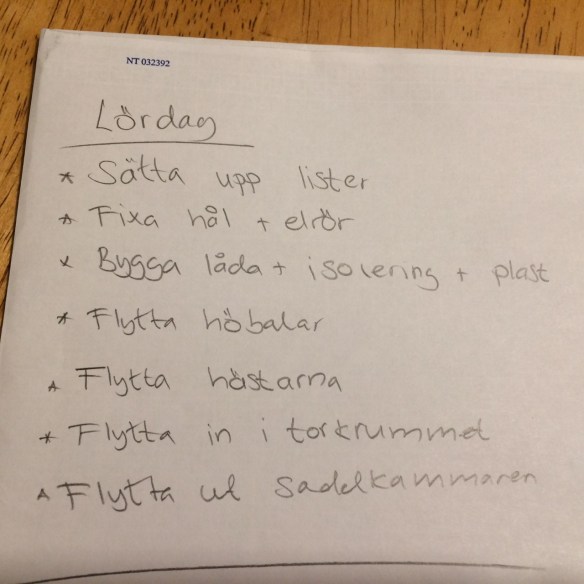 NT 032392
Lördag
* Sätta upp lister
* Fixa hål + elrör
* Bygga låda + isolering + plast
* Flytta höbalar
* Flytta hästarna
* Flytta in i torkrummet
* Flytta ut sadelkammaren